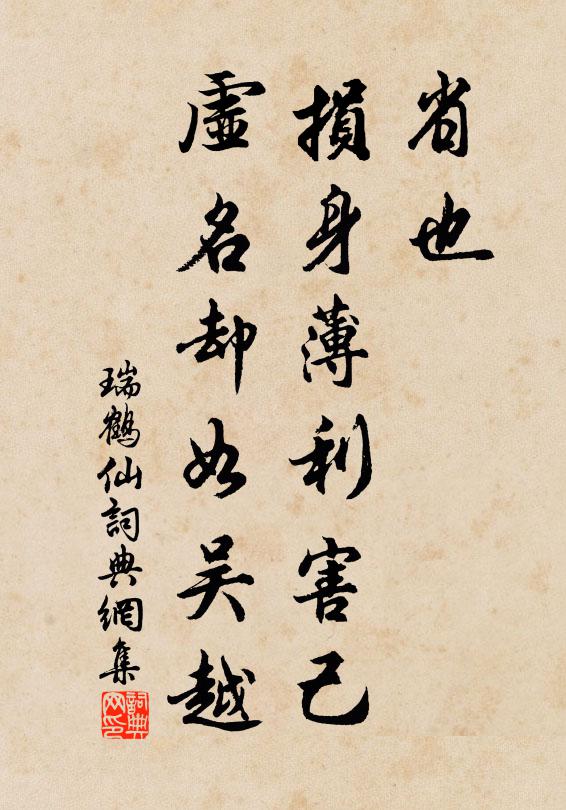 省也
損身薄利害己
虛名却如吴越
瑞鶴仙詞典網集
詞典网印